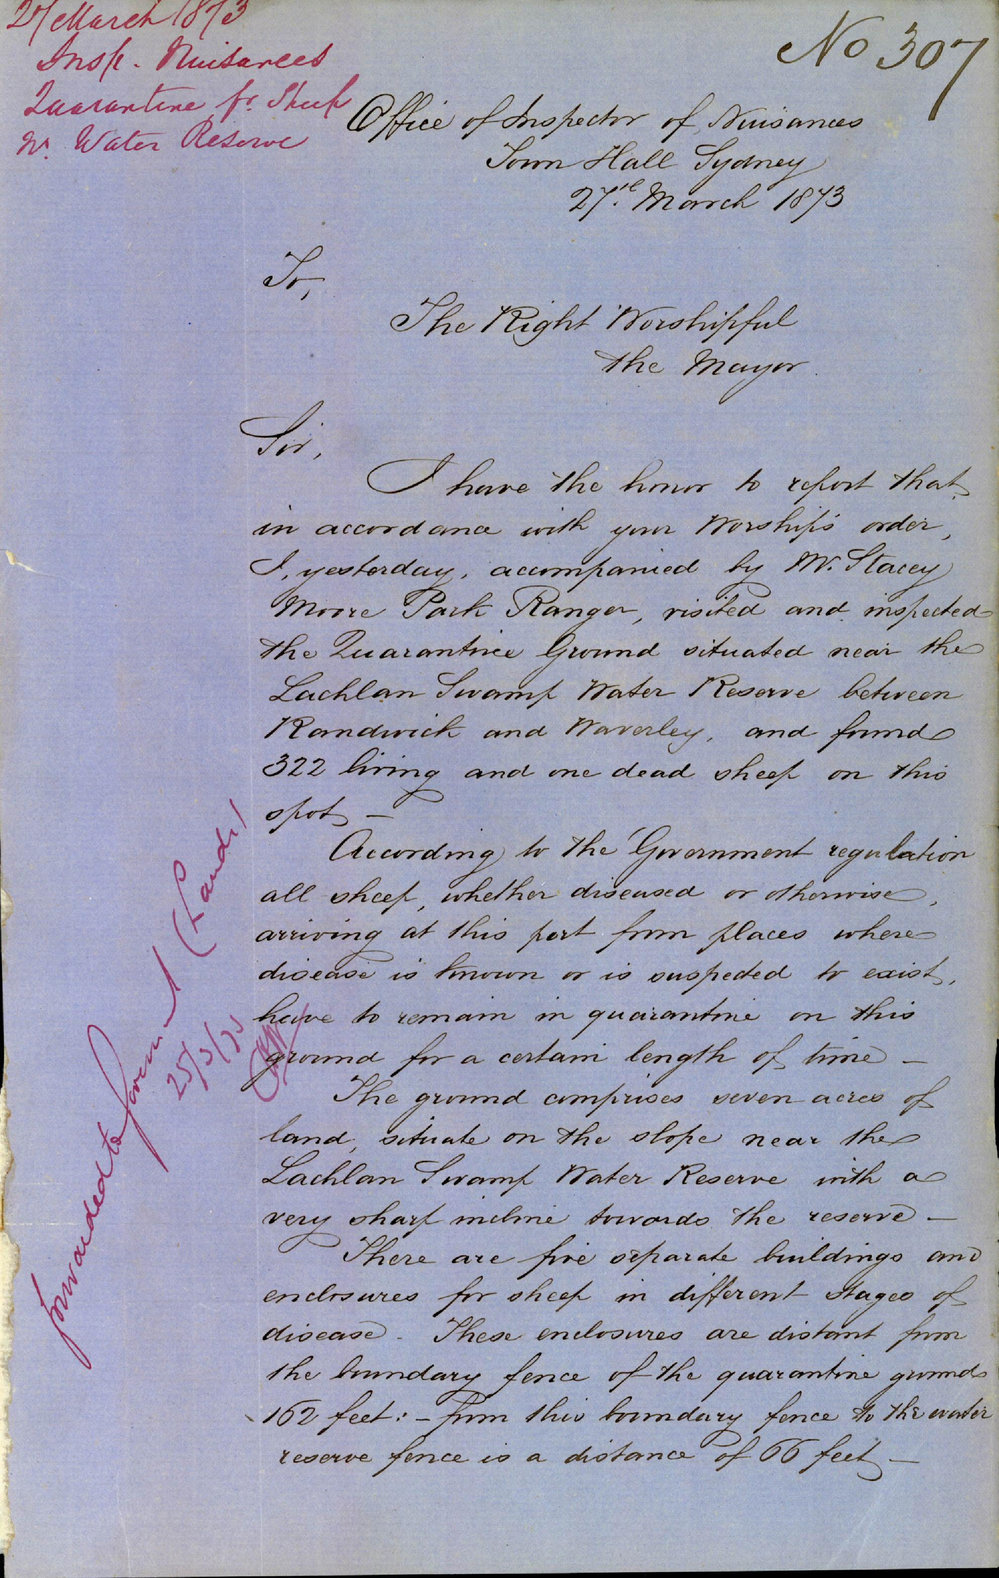 27 March 1873
Insp. Nuisances
Quarantine fr. Sheep
nr. Water Reserve
No 307
Office of Inspector of Nuisances
Town Hall Sydney
27th March 1873
To,
The Right Worshipful
the Mayor.
Sir,
I have the honor to report that
in accordance with your Worship's order,
I, yesterday, accompanied by Mr. Stacey
Moore Park Ranger, visited and inspected
the Quarantine Ground situated near the
Lachlan Swamp Water Reserve between
Randwick and Waverley, and found
322 living and one dead sheep on this
spot —
According to the Government regulation
all sheep, whether diseased or otherwise,
arriving at this port from places where
disease is known or is suspected to exist,
have to remain in quarantine on this
ground for a certain length of time —
The ground comprises seven acres of
land, situate on the slope near the
Lachlan Swamp Water Reserve with a
very sharp incline towards the reserve —
There are five separate buildings and
enclosures for sheep in different stages of
disease. These enclosures are distant from
the boundary fence of the quarantine grounds
162 feet: – from this boundary fence to the water
reserve fence is a distance of 66 feet —
forwarded to Government (Lands)
25/3/73